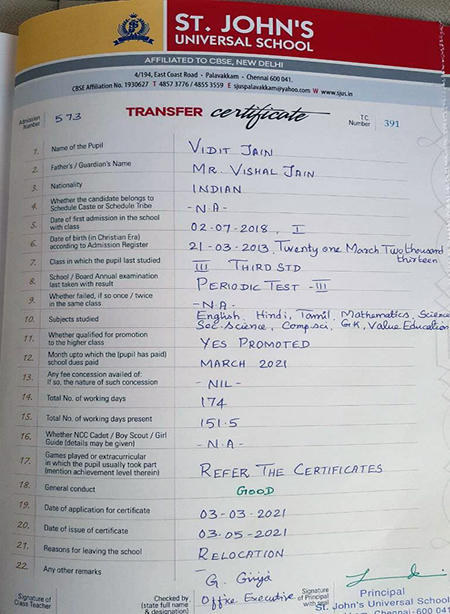 ST. JOHN'S
UNIVERSAL SCHOOL
AFFILIATED TO CBSE, NEW DELHI
4/194, East Coast Road - Palavakkam - Chennai 600 041.
CBSE Affiliation No. 1930627 T 4857 3776 / 4855 3559 E sjuspalavakkam@yahoo.com W www.sjus.in
Admission Number 573 TRANSFER certificate T.C. Number 391
1. Name of the Pupil VIDIT JAIN
2. Father's / Guardian's Name MR. VISHAL JAIN
3. Nationality INDIAN
4. Whether the candidate belongs to Schedule Caste or Schedule Tribe -N.A-
5. Date of first admission in the school with class 02-07-2018, I
6. Date of birth (in Christian Era) according to Admission Register 21-03-2013, Twenty one March Two thousand thirteen
7. Class in which the pupil last studied III THIRD STD
8. School / Board Annual examination last taken with result PERIODIC TEST - III
9. Whether failed, if so once / twice in the same class -N.A-
10. Subjects studied English, Hindi, Tamil, Mathematics, Science
Soc-science, Comp.sci, G.K, Value Education
11. Whether qualified for promotion to the higher class YES PROMOTED
12. Month upto which the (pupil has paid) school dues paid MARCH 2021
13. Any fee concession availed of: If so, the nature of such concession - NIL -
14. Total No. of working days 174
15. Total No. of working days present 151.5
16. Whether NCC Cadet / Boy Scout / Girl Guide (details may be given) -N.A-
17. Games played or extracurricular in which the pupil usually took part (mention achievement level therein) REFER THE CERTIFICATES
18. General conduct GOOD
19. Date of application for certificate 03-03-2021
20. Date of issue of certificate 03-05-2021
21. Reasons for leaving the school RELOCATION
22. Any other remarks
Signature of Class Teacher
Checked by (state full name & designation)
G. Girija
Office Executive
Signature of Principal
Principal
St. John's Universal School